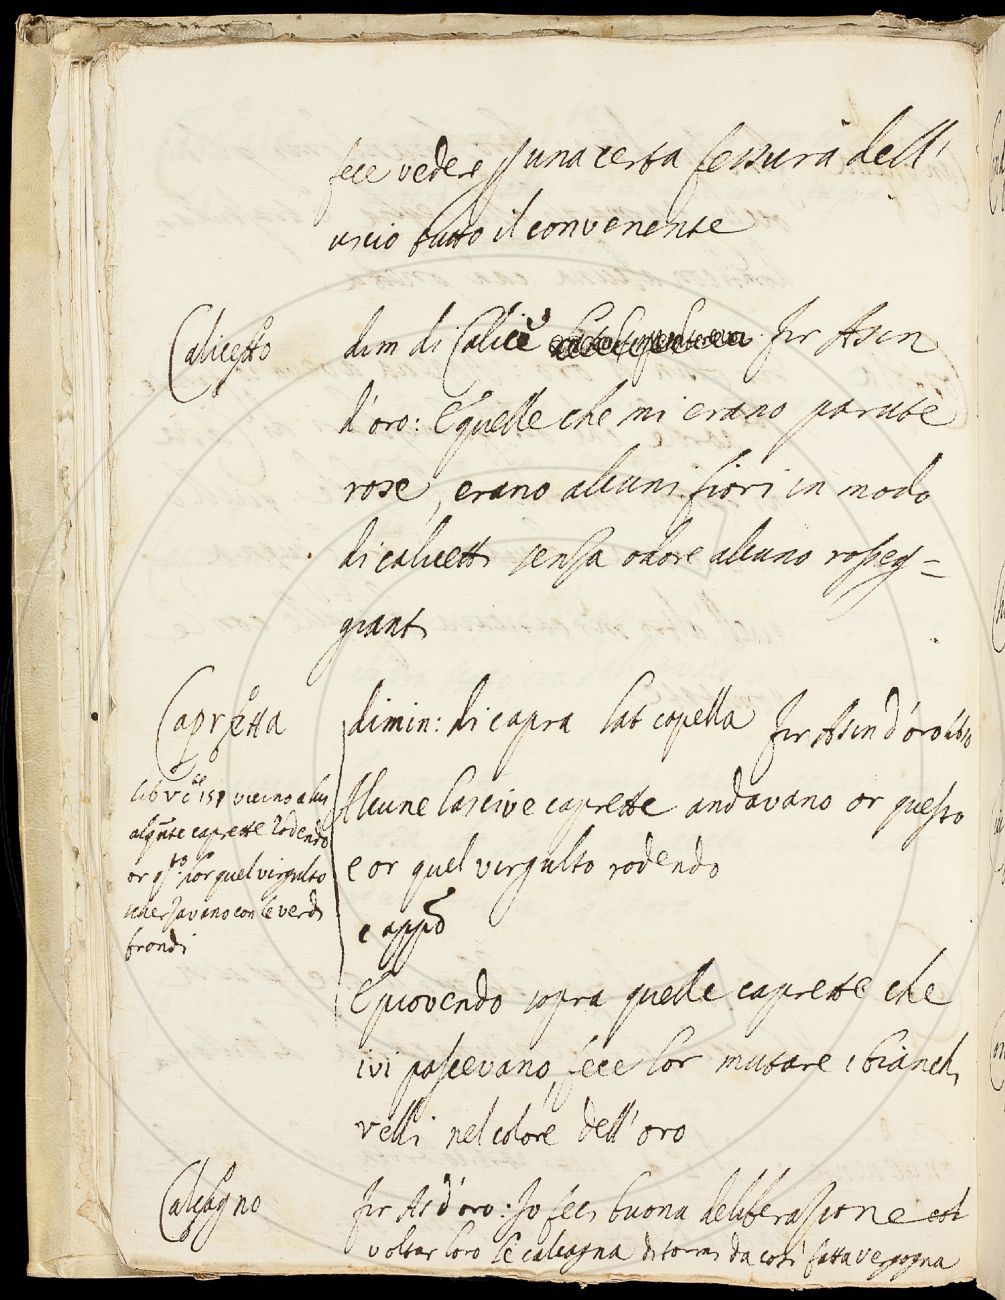 fece vedere p una certa fessura dell'
uscio tutto il convenente
Calicetto
dim di Calice Fir Asin
d'oro: E quelle che mi erano parute
rose, erano alcuni fiori in modo
di calicetti senza odore alcuno rosseg=
gianti
Capretta
dimin: di capra lat capella Fir Asin d'oro
Alcune lascive caprette andavano or questo
e or quel virgulto rodendo
e appo
E piovendo sopra quelle caprette che
ivi pascevano, fece lor mutare i bianchi
velli nel colore dell'oro
lib V 151 vicino a lui
alqute caprette rodendo
or qto: or quel virgulto
scherzavano con le verdi
frondi
Calcagno
Fir As d'oro: Io feci buona deliberazione
voltar loro le calcagna di tormi da così fatta vergogna